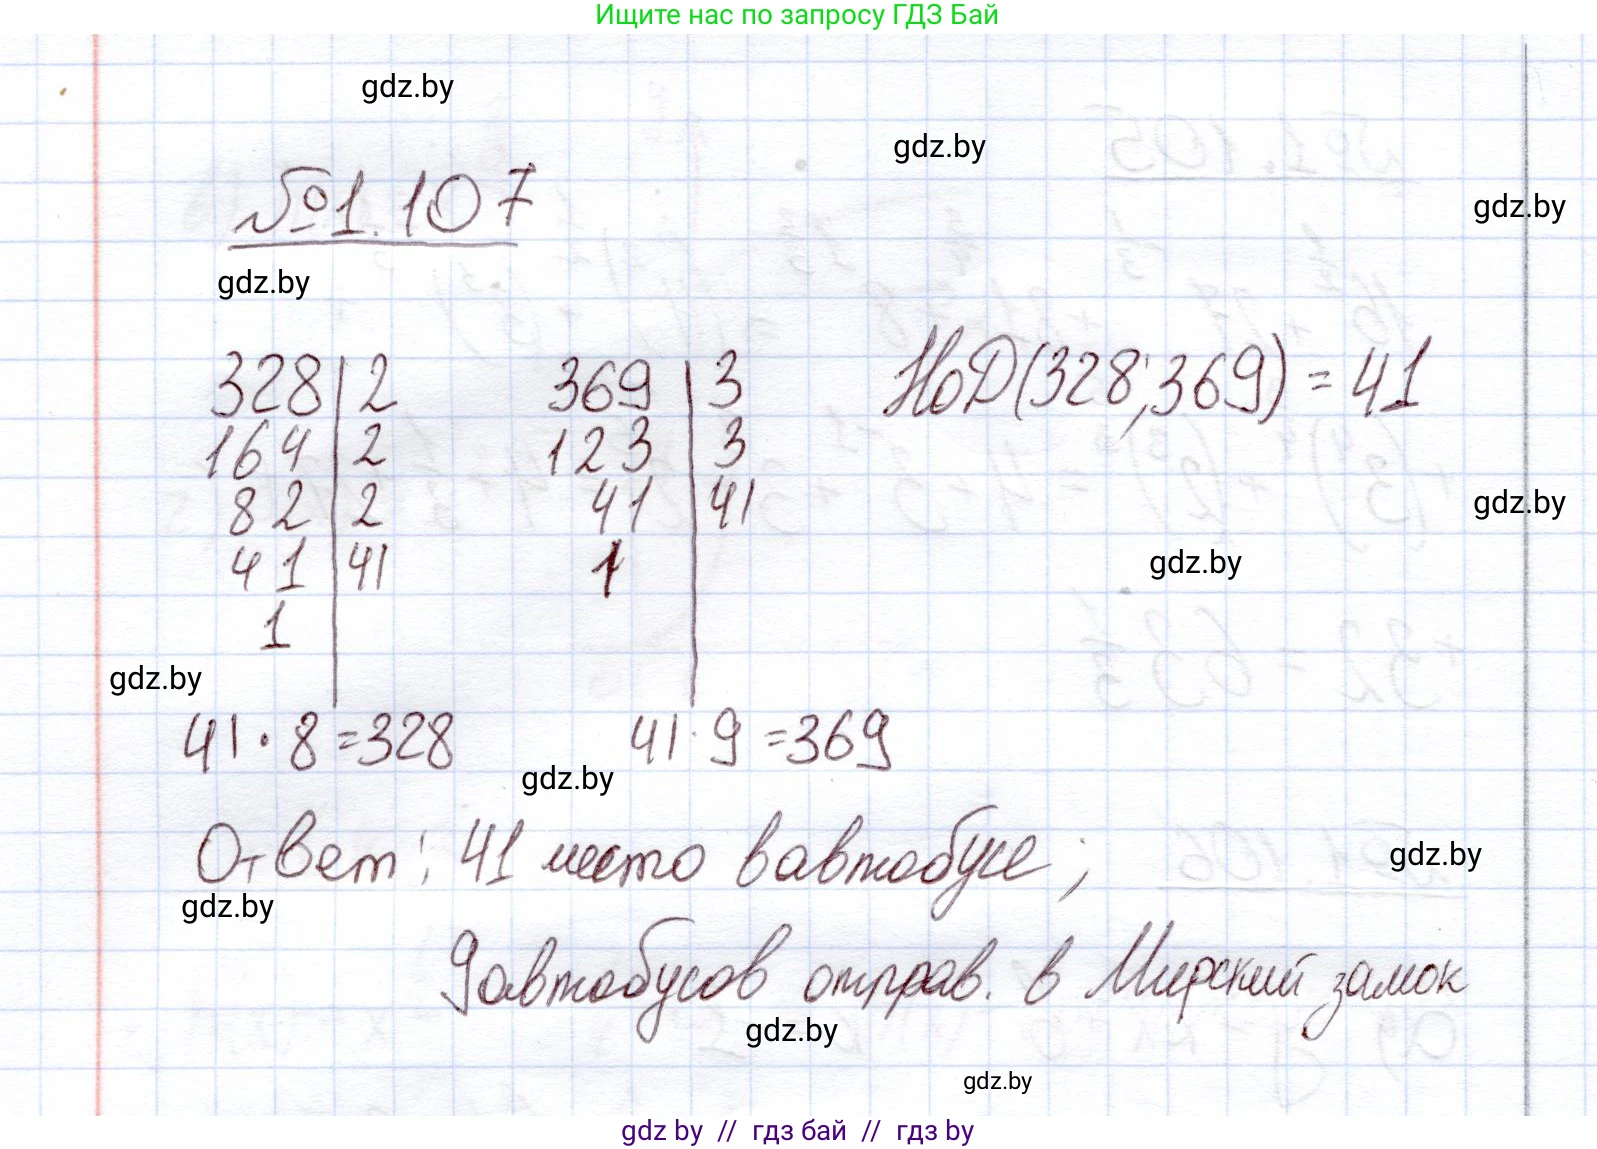 Ищите нас по запросу ГДЗ Бай
gdz.by
gdz.by
№1.107
gdz.by
gdz.by
328 | 2 369 | 3 НоД(328;369) = 41
164 | 2 123 | 3
82 | 2 41 | 41
gdz.by
41 | 41 1
gdz.by
1
gdz.by
41 · 8 = 328 41 · 9 = 369
gdz.by
Ответ: 41 место в автобусе;
gdz.by
gdz.by
9 автобусов отправ. в Мирский замок
gdz.by
gdz.by
gdz by // гдз бай // гдз by